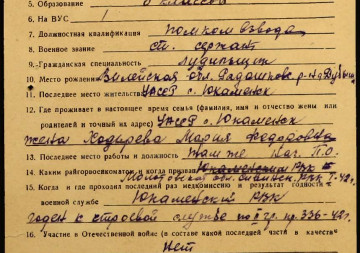 5. Образование
6. На ВУС
7. Должностная квалификация помком взвода
8. Военное звание ст. сержант
9. Гражданская специальность
10. Место рождения Вилейская обл. Радошковс. р-н д.
11. Последнее место жительства УАССР с. Юкаменск
12. Где проживает в настоящее время семья (фамилия, имя и отчество жены или
родителей и точный их адрес) УАССР с. Юкаменск
жена Ходырева Мария Федоровна
13. Последнее место работы и должность там же П.О.
14. Каким райгорвоенкоматом и когда призван Юкаменским РВК
Молотовская обл. РВК 7-42 г.
15. Когда и где проходил последний раз медкомиссию и результат годности к
военной службе Юкаменский РВК
годен к строевой службе по II гр. пр. 336-42 г.
16. Участие в Отечественной войне (в составе какой последней части и в качестве
Нет